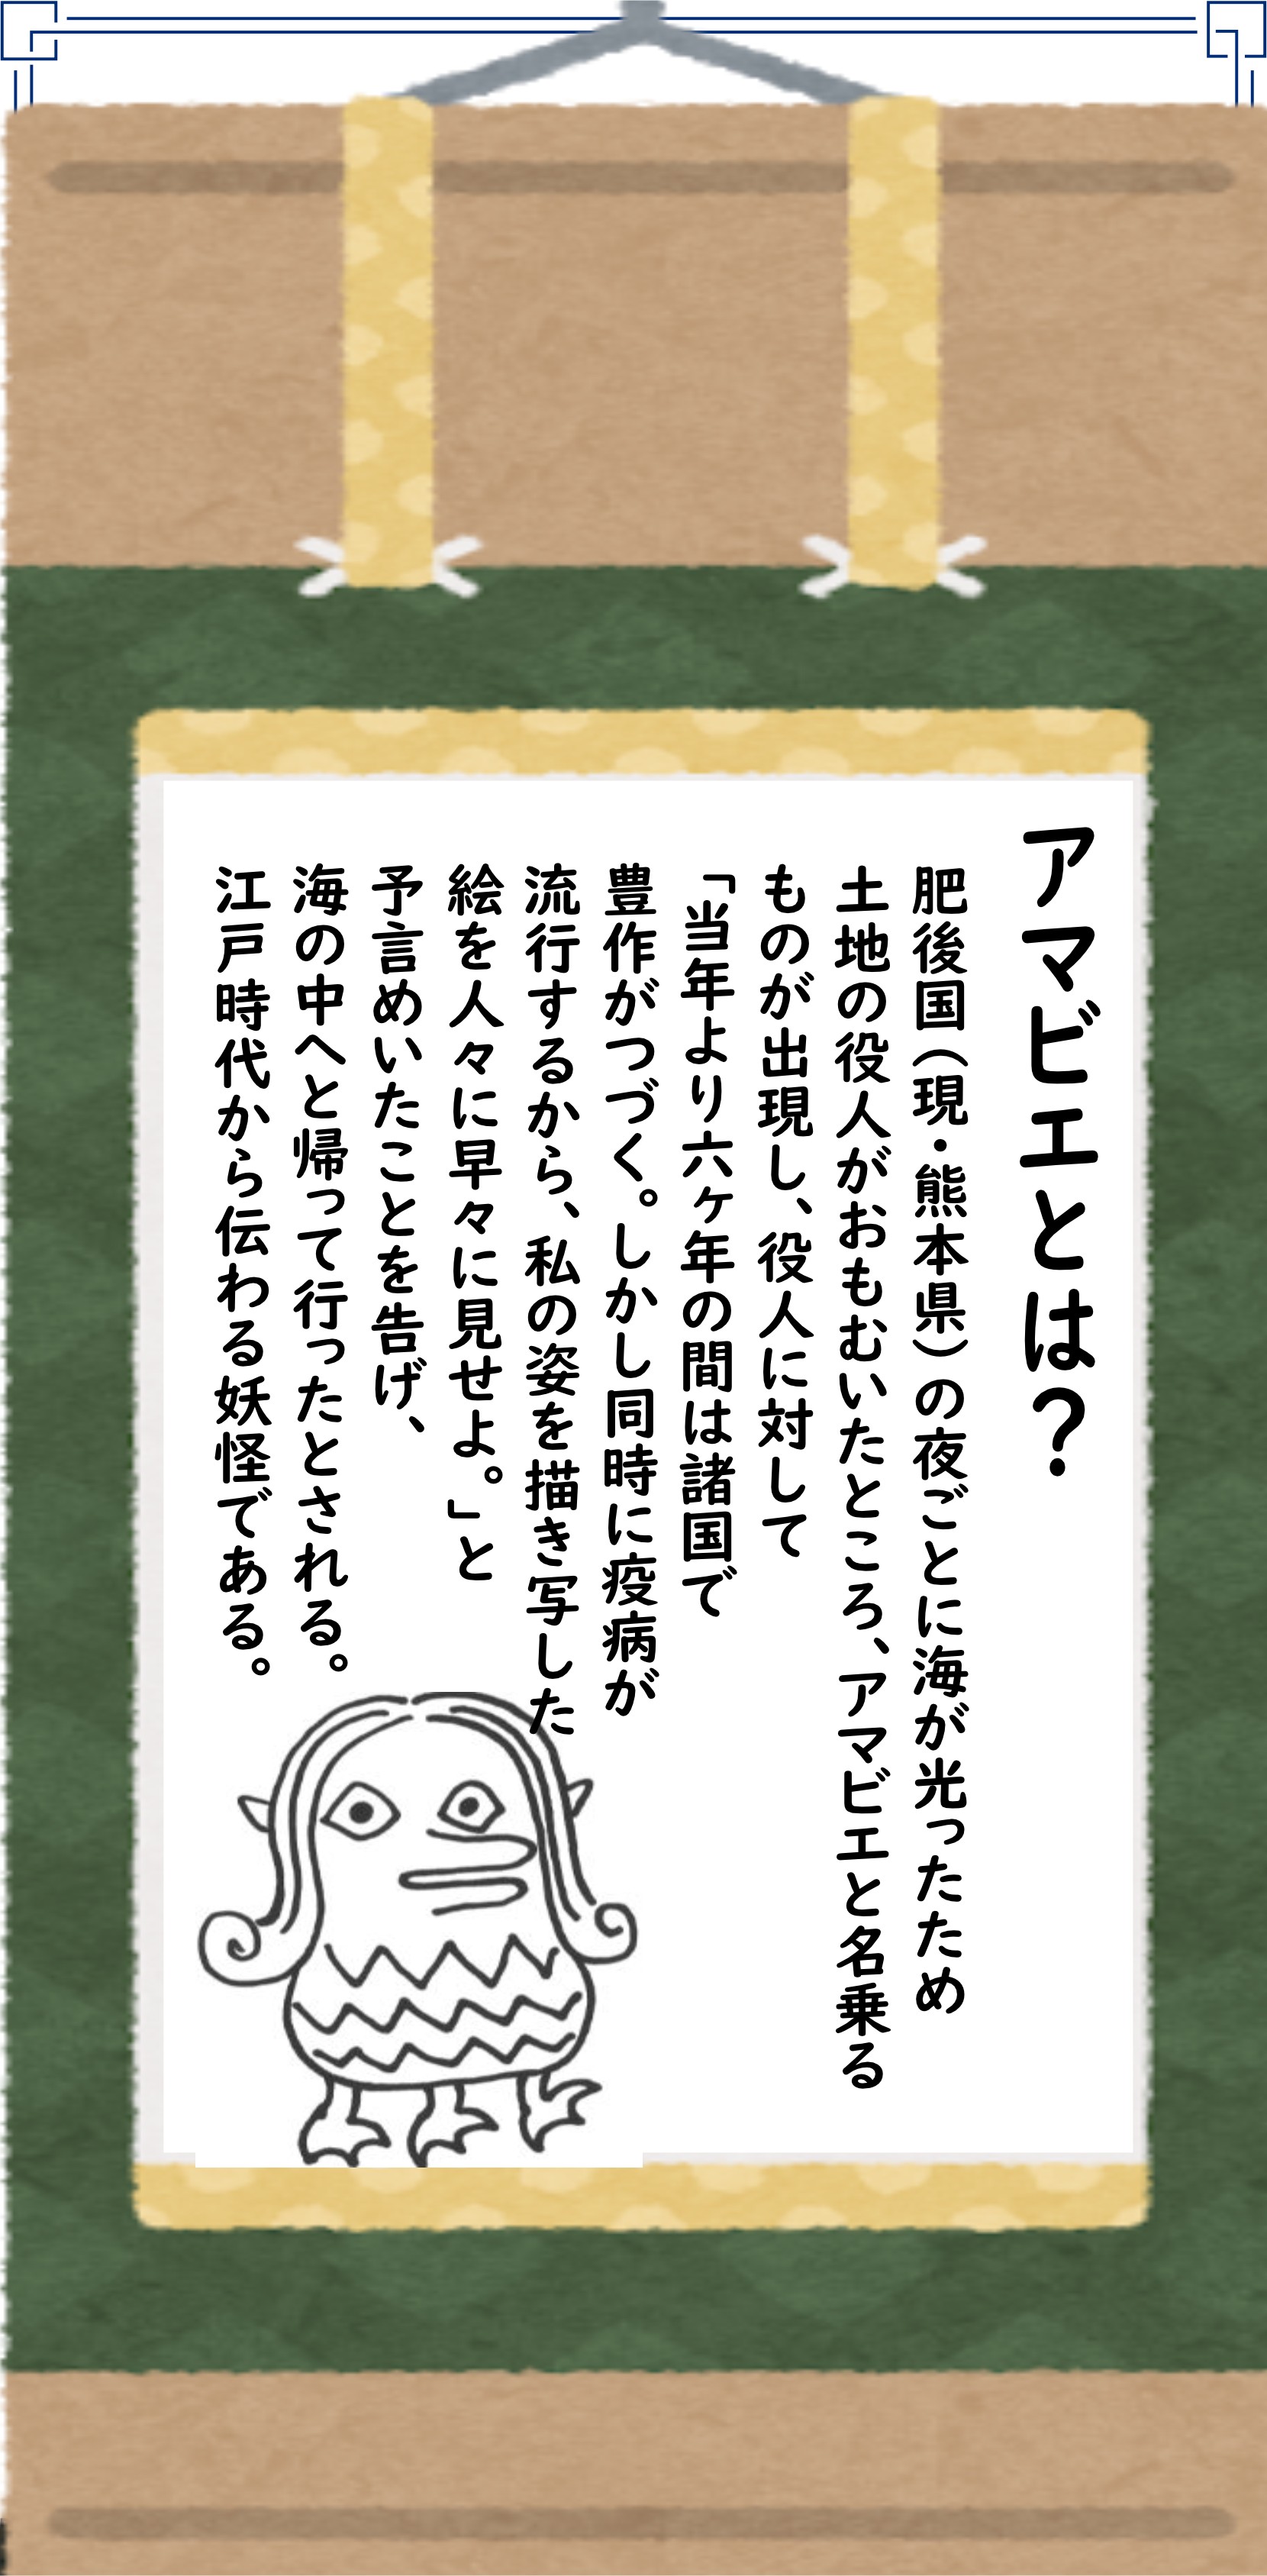 アマビエとは？
肥後国（現・熊本県）の夜ごとに海が光ったため
土地の役人がおもむいたところ、アマビエと名乗る
ものが出現し、役人に対して
「当年より六ヶ年の間は諸国で
豊作がつづく。しかし同時に疫病が
流行するから、私の姿を描き写した
絵を人々に早々に見せよ。」と
予言めいたことを告げ、
海の中へと帰って行ったとされる。
江戸時代から伝わる妖怪である。